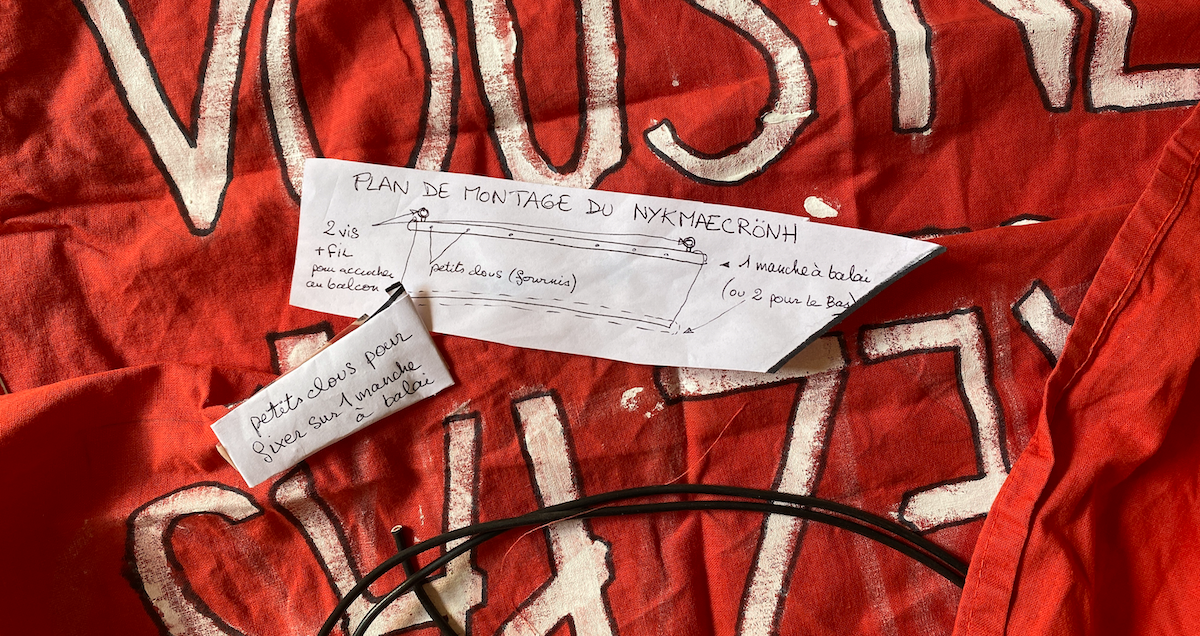 VOUS
PLAN DE MONTAGE DU NYKMAECRÖNH
2 vis
+ fil
pour accrocher
au balcon
petits clous (fournis)
1 manche à balai
(ou 2 pour le Bas)
petits clous pour
fixer sur 1 manche
à balai